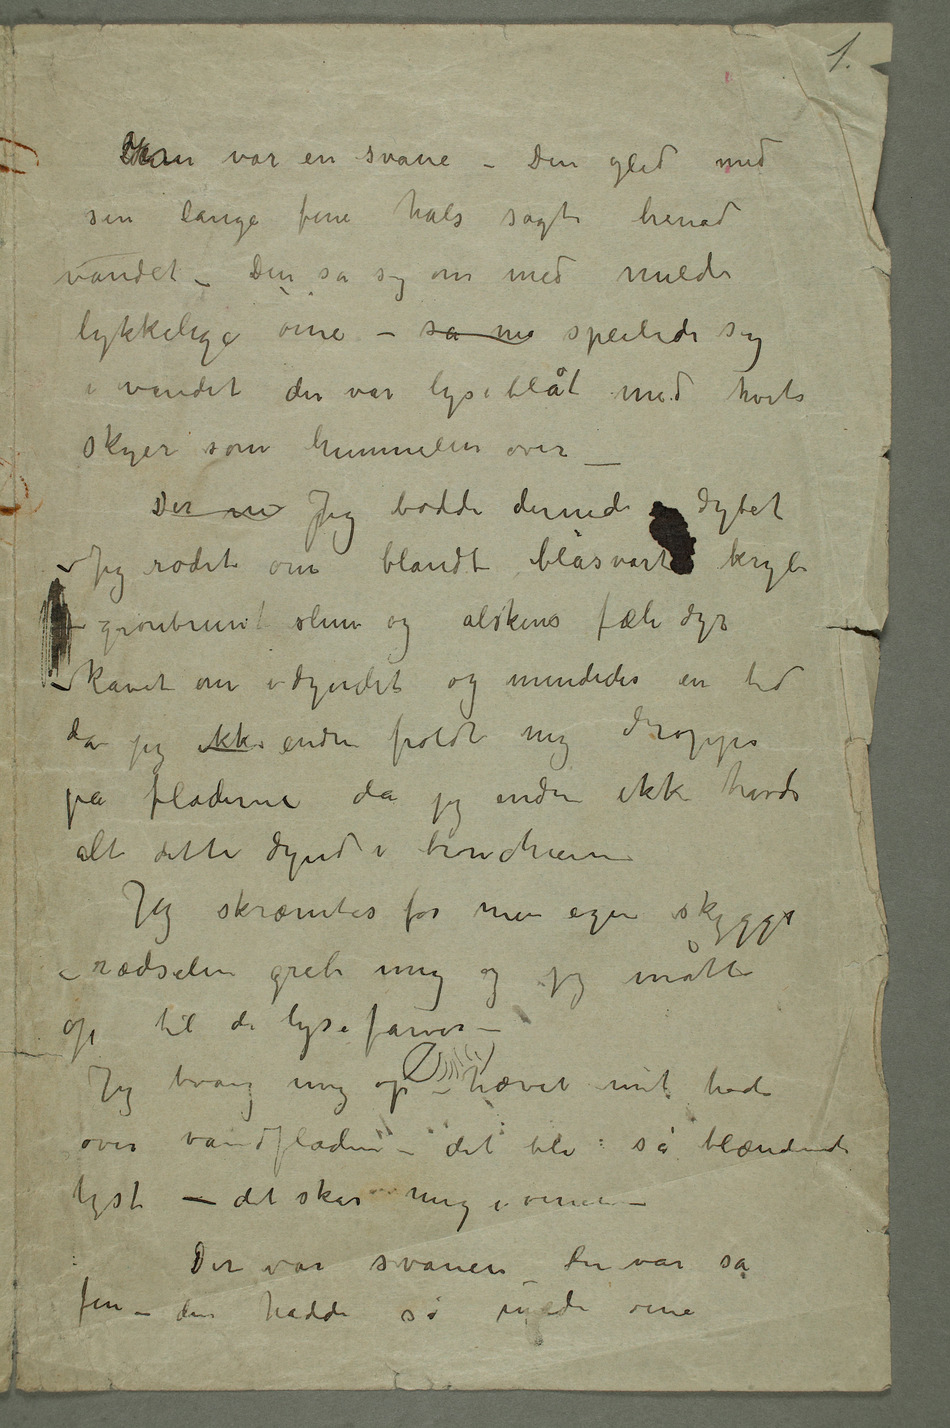 1.
Den var en svane – Den gled med
sin lange fine hals sagte henad
vandet – Den sa sig om med milde
lykkelige öine – så me speilede sig
i vandet der var lyseblåt med hvite
skyer som himmelen over –
Der me Jeg bodde dernede i dybet
– Jeg rodet om blandt blåsvart kryb
– grönbrunt slim og alskens fæle dyr
– kavet om i dyndet og mindedes en tid
da jeg ikke endnu froldt mig droppe
på fladerne da jeg endnu ikke havde
alt dette dynd i
Jeg skræmtes for min egen skygge
– rædselen greb mig og jeg måtte
op til de lyse farver –
Jeg tvang mig op – hævet mit hode
over vandfladen – det ble så blændende
lyst – det skar mig i öinene –
Der var svanen – den var så
fin – den hadde så milde öine